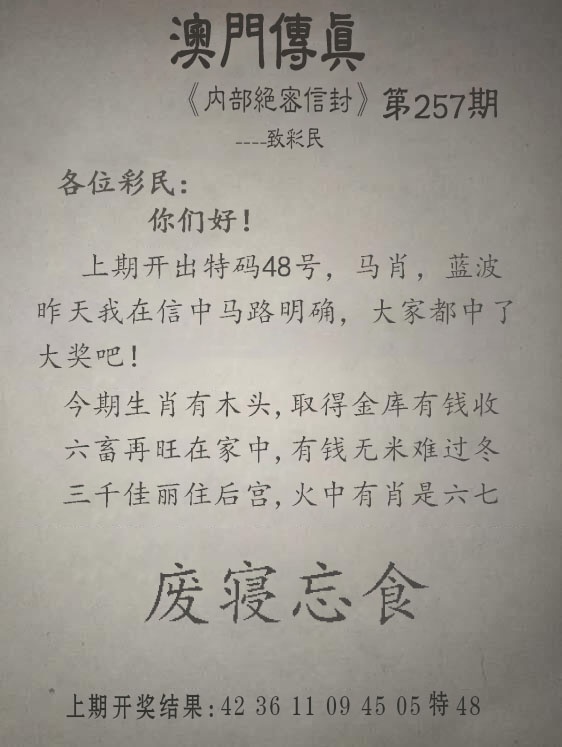 澳門傳眞
《内部絕密信封》第257期
----致彩民
各位彩民：
你们好！
上期开出特码48号，马肖，蓝波
昨天我在信中马路明确，大家都中了
大奖吧！
今期生肖有木头,取得金库有钱收
六畜再旺在家中,有钱无米难过冬
三千佳丽住后宫,火中有肖是六七
废寝忘食
上期开奖结果:42 36 11 09 45 05 特 48